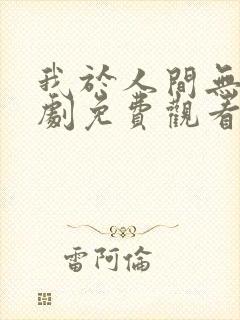 我於人間無
劇免費觀看
雷阿倫